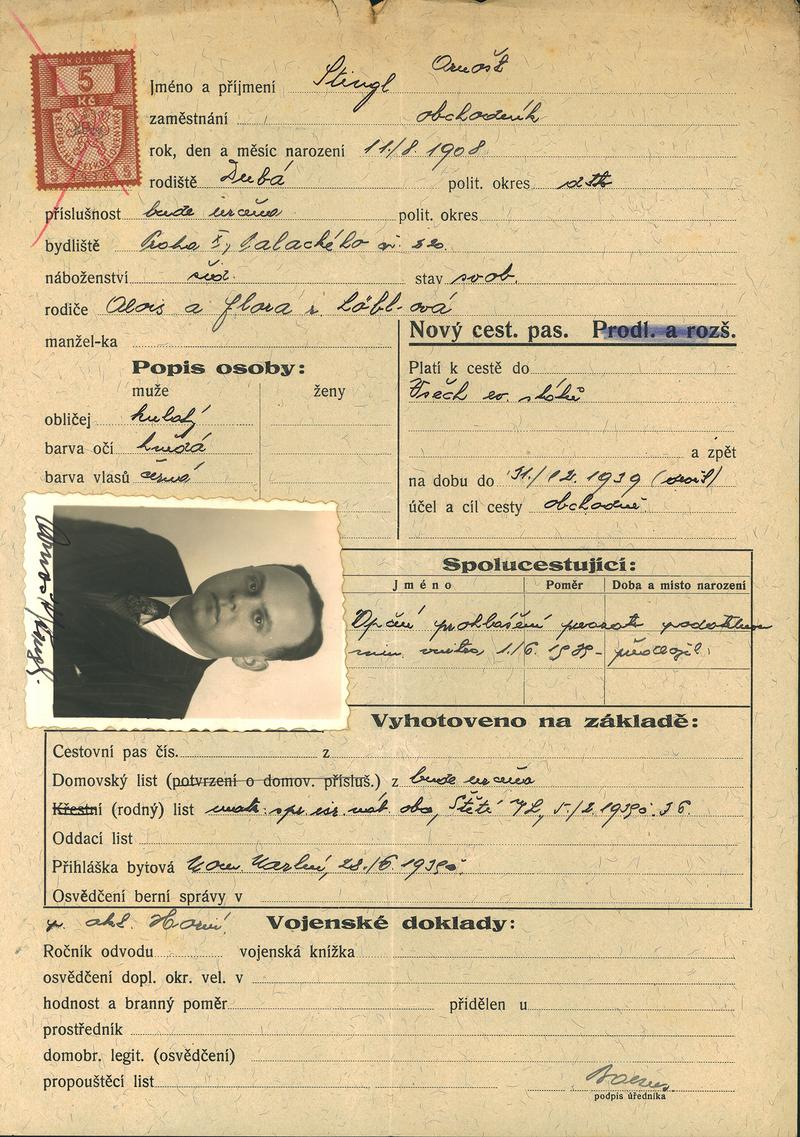 KOLEK
5
Kč
Jméno a příjmení Stingl Arnošt
zaměstnání obchodník
rok, den a měsíc narození 11/8. 1908
rodiště Dubá polit. okres dtto
příslušnost bude určena polit. okres
bydliště Praha X, Palackého č. 20.
náboženství žid. stav svob.
rodiče Alois a Flora r. Löbl-ová
manžel-ka
Nový cest. pas. Prodl. a rozš.
Popis osoby:
muže ženy
obličej kulatý
barva očí hnědá
barva vlasů černá
Platí k cestě do
Všech ev. států
a zpět
na dobu do 31./12. 1939
účel a cíl cesty obchodně
Arnošt Stingl.
Spolucestující:
Jméno Poměr Doba a místo narození
Opční prohlášení
min. vnitra 1./6. 1939 - předložil.
Vyhotoveno na základě:
Cestovní pas čís. z
Domovský list (potvrzení o domov. přísluš.) z bude určena
Křestní (rodný) list matr. spr. isr. náb. obc, Štětí 5./2. 1939 č. 36.
Oddací list
Přihláška bytová Karlín, 28./6. 1939
Osvědčení berní správy v
Vojenské doklady:
Ročník odvodu vojenská knížka
osvědčení dopl. okr. vel. v
hodnost a branný poměr přidělen u
prostředník
domobr. legit. (osvědčení)
propouštěcí list
podpis úředníka